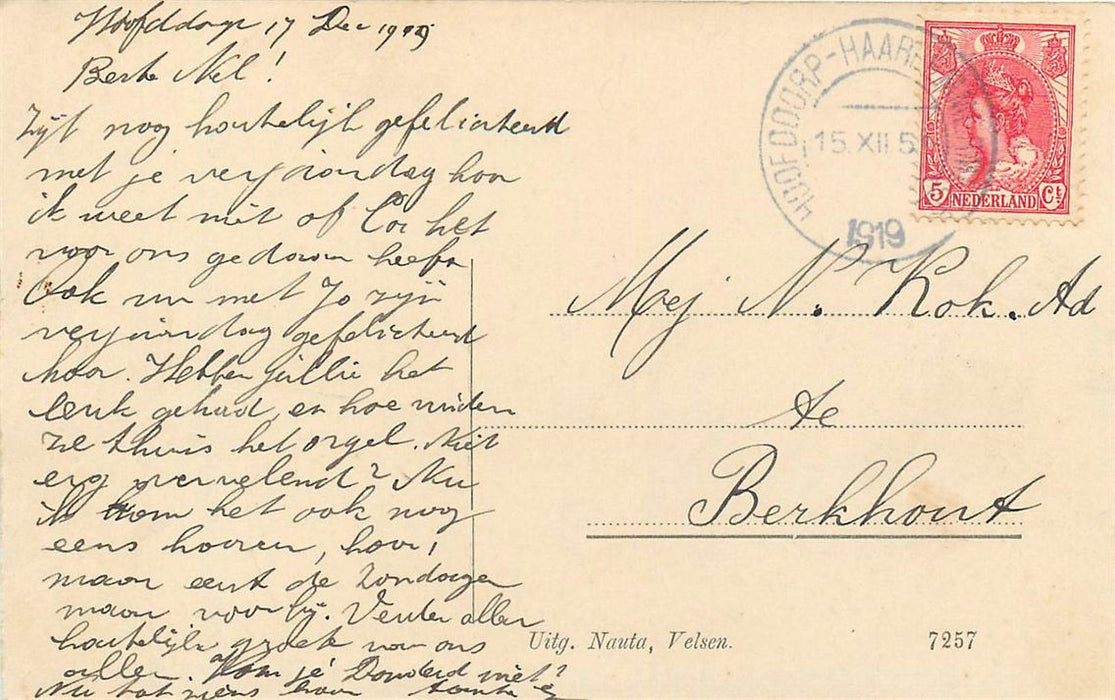 Hoofddorp 17 Dec 1919
Beste Nel!
Zijt nog hartelijk gefeliciteerd
met je verjaardag hoor
ik weet niet of Cor het
voor ons gedaan heeft
Ook nu met Jo zijn
verjaardag gefeliciteerd
hoor. Hebben jullie het
leuk gehad, en hoe vinden
ze thuis het orgel. Niet
erg vervelend? Nu
ik kom het ook nog
eens hooren, hoor,
maar eerst de Zondagen
maar voorbij. Verder allen
hartelijk groete van ons
allen. Kom je Donderd niet?
Nu tot ziens hoor tante
HOOFDDORP-HAARLEM
15.XII 5
1919
5 NEDERLAND Ct
Mej N. Kok. Ad
te
Berkhout
Uitg. Nauta, Velsen.
7257